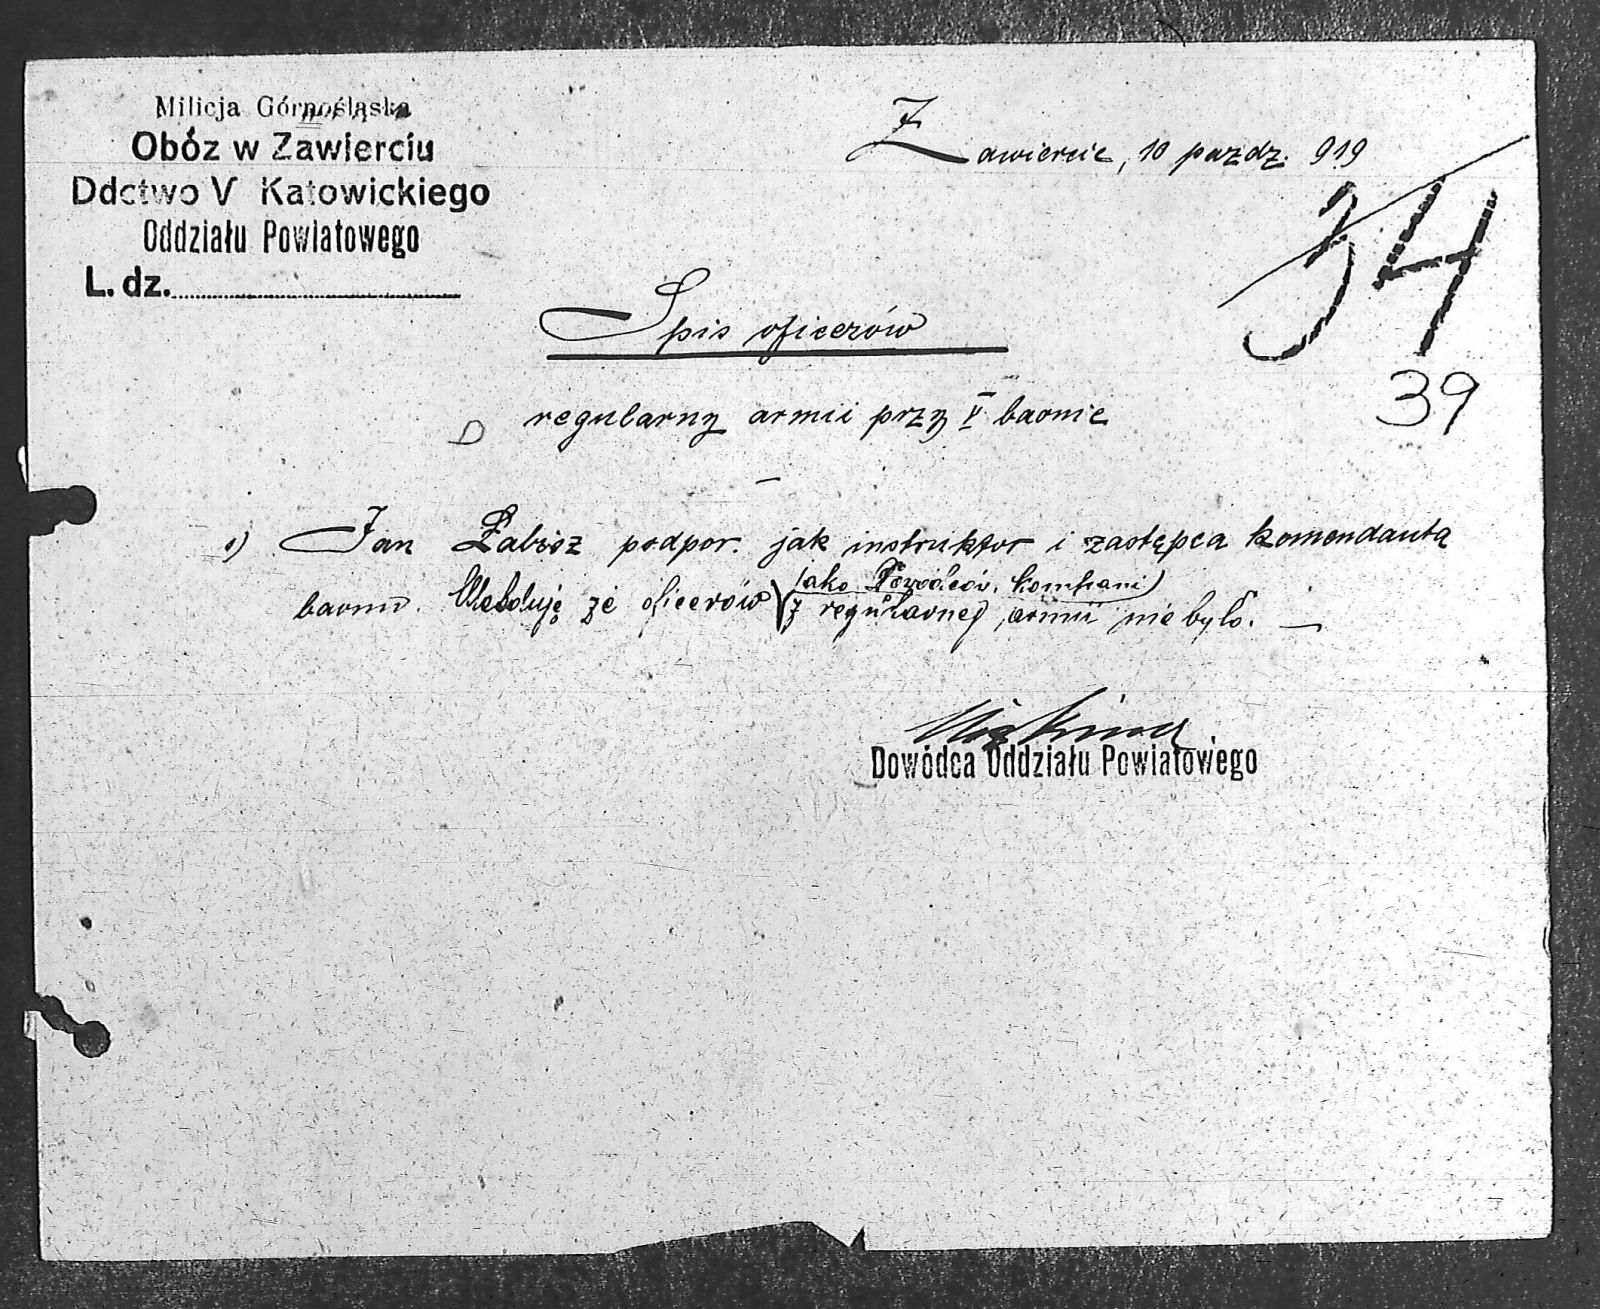 Milicja Górnośląska
Obóz w Zawierciu
Ddctwo V Katowickiego
Oddziału Powiatowego
L. dz.
Zawiercie, 10 pazdz. 919
34
39
Spis oficerów
regularny armii przy V baonie
1) Jan Łabisz podpor. jak instruktor i zastępca komendanta
(jako kompani)
baonu. Melduję że oficerów z regularnej armii nie było. —
Dowódca Oddziału Powiatowego